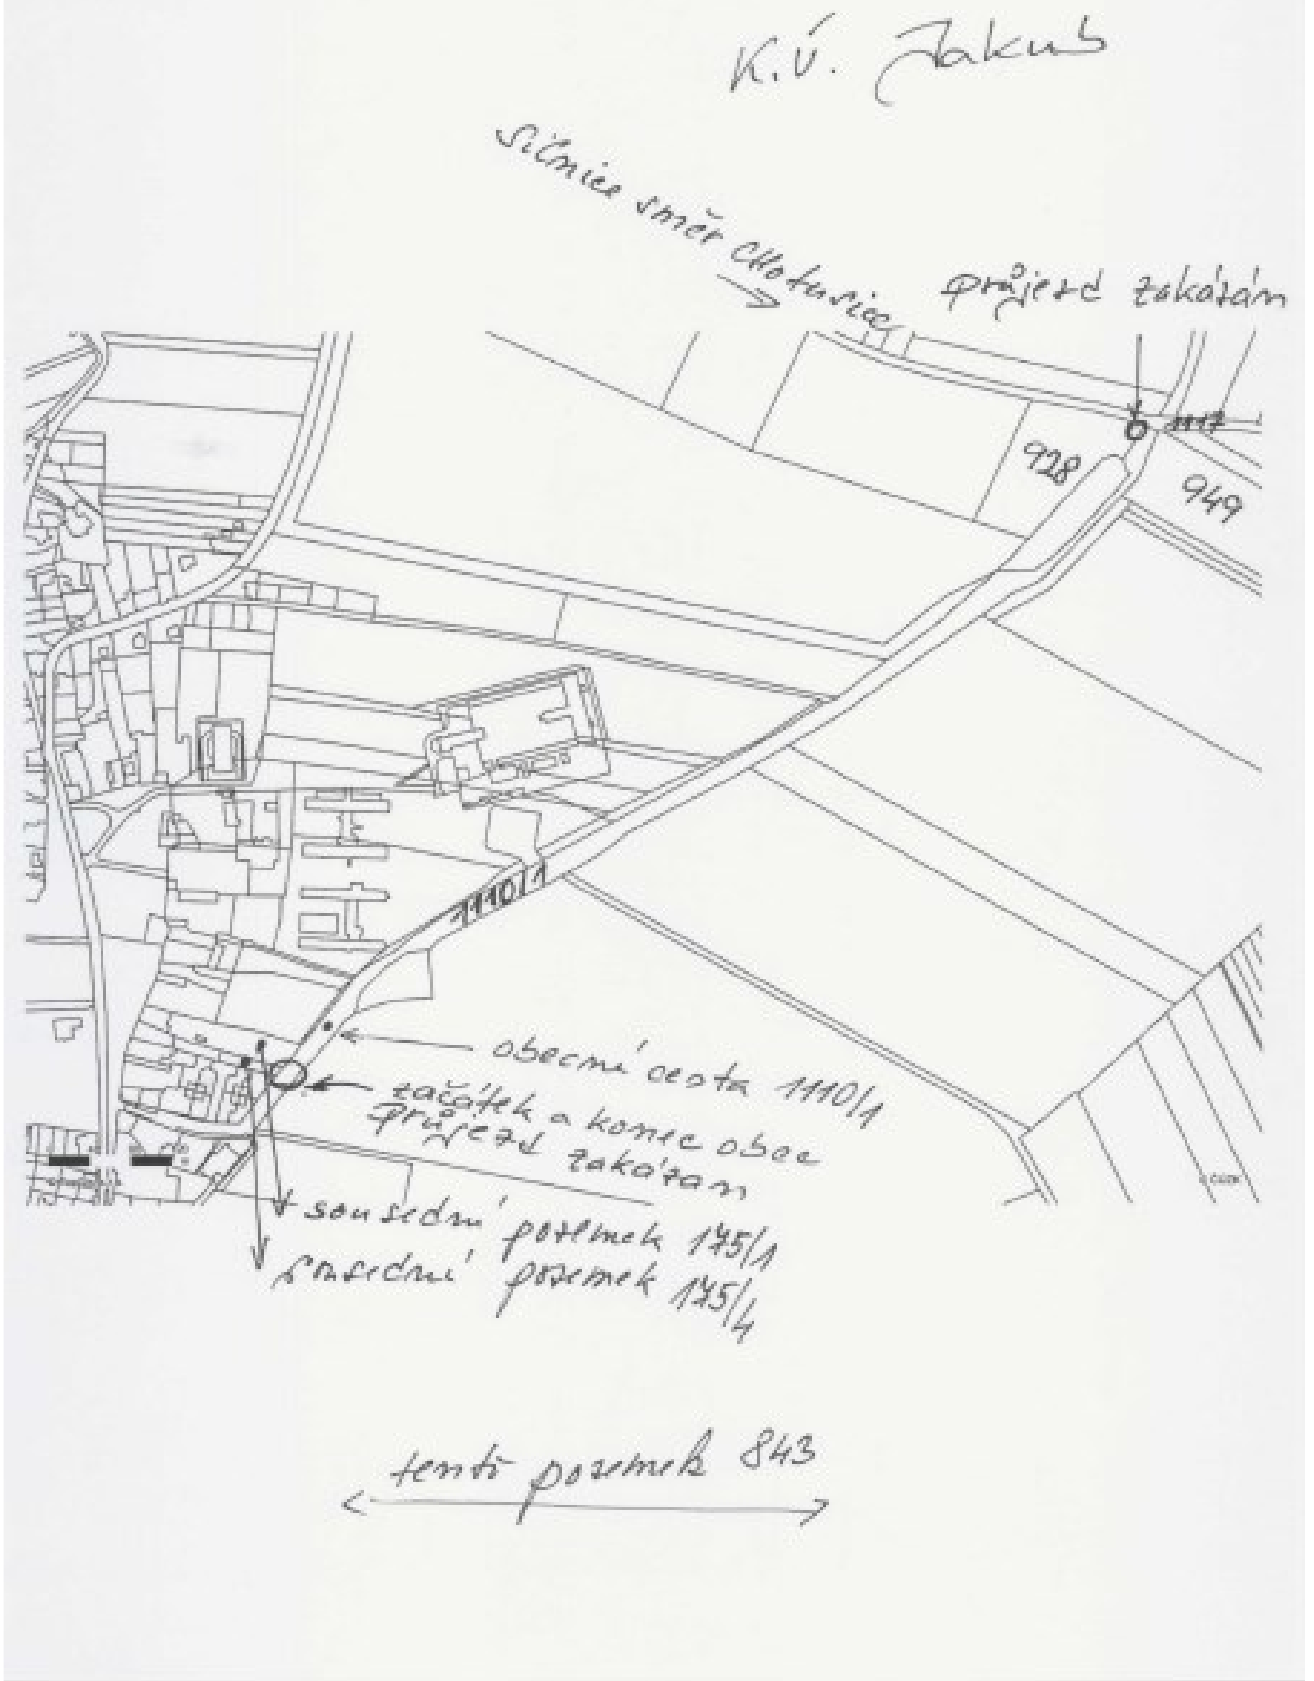 K.Ú. Jakub
silnice směr Chotusice
průjezd zakázán
1117
928
949
1110/1
obecní cesta 1110/1
začátek a konec obec
průjezd zakázan
sousední pozemek 175/1
sousední pozemek 175/4
tento pozemek 843